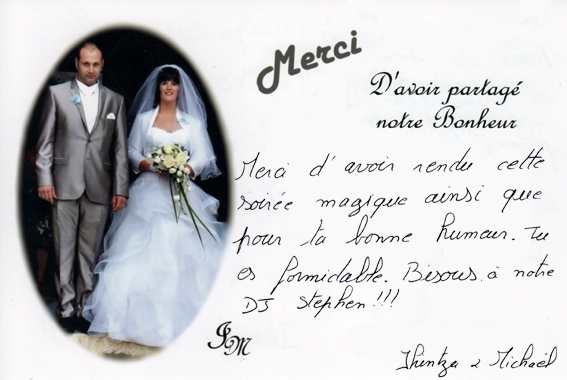 Merci
D'avoir partagé
notre Bonheur
Merci d'avoir rendu cette
soirée magique ainsi que
pour ta bonne humeur. Tu
es formidable. Bisous à notre
DJ Stephen!!!
IM
& Michaël